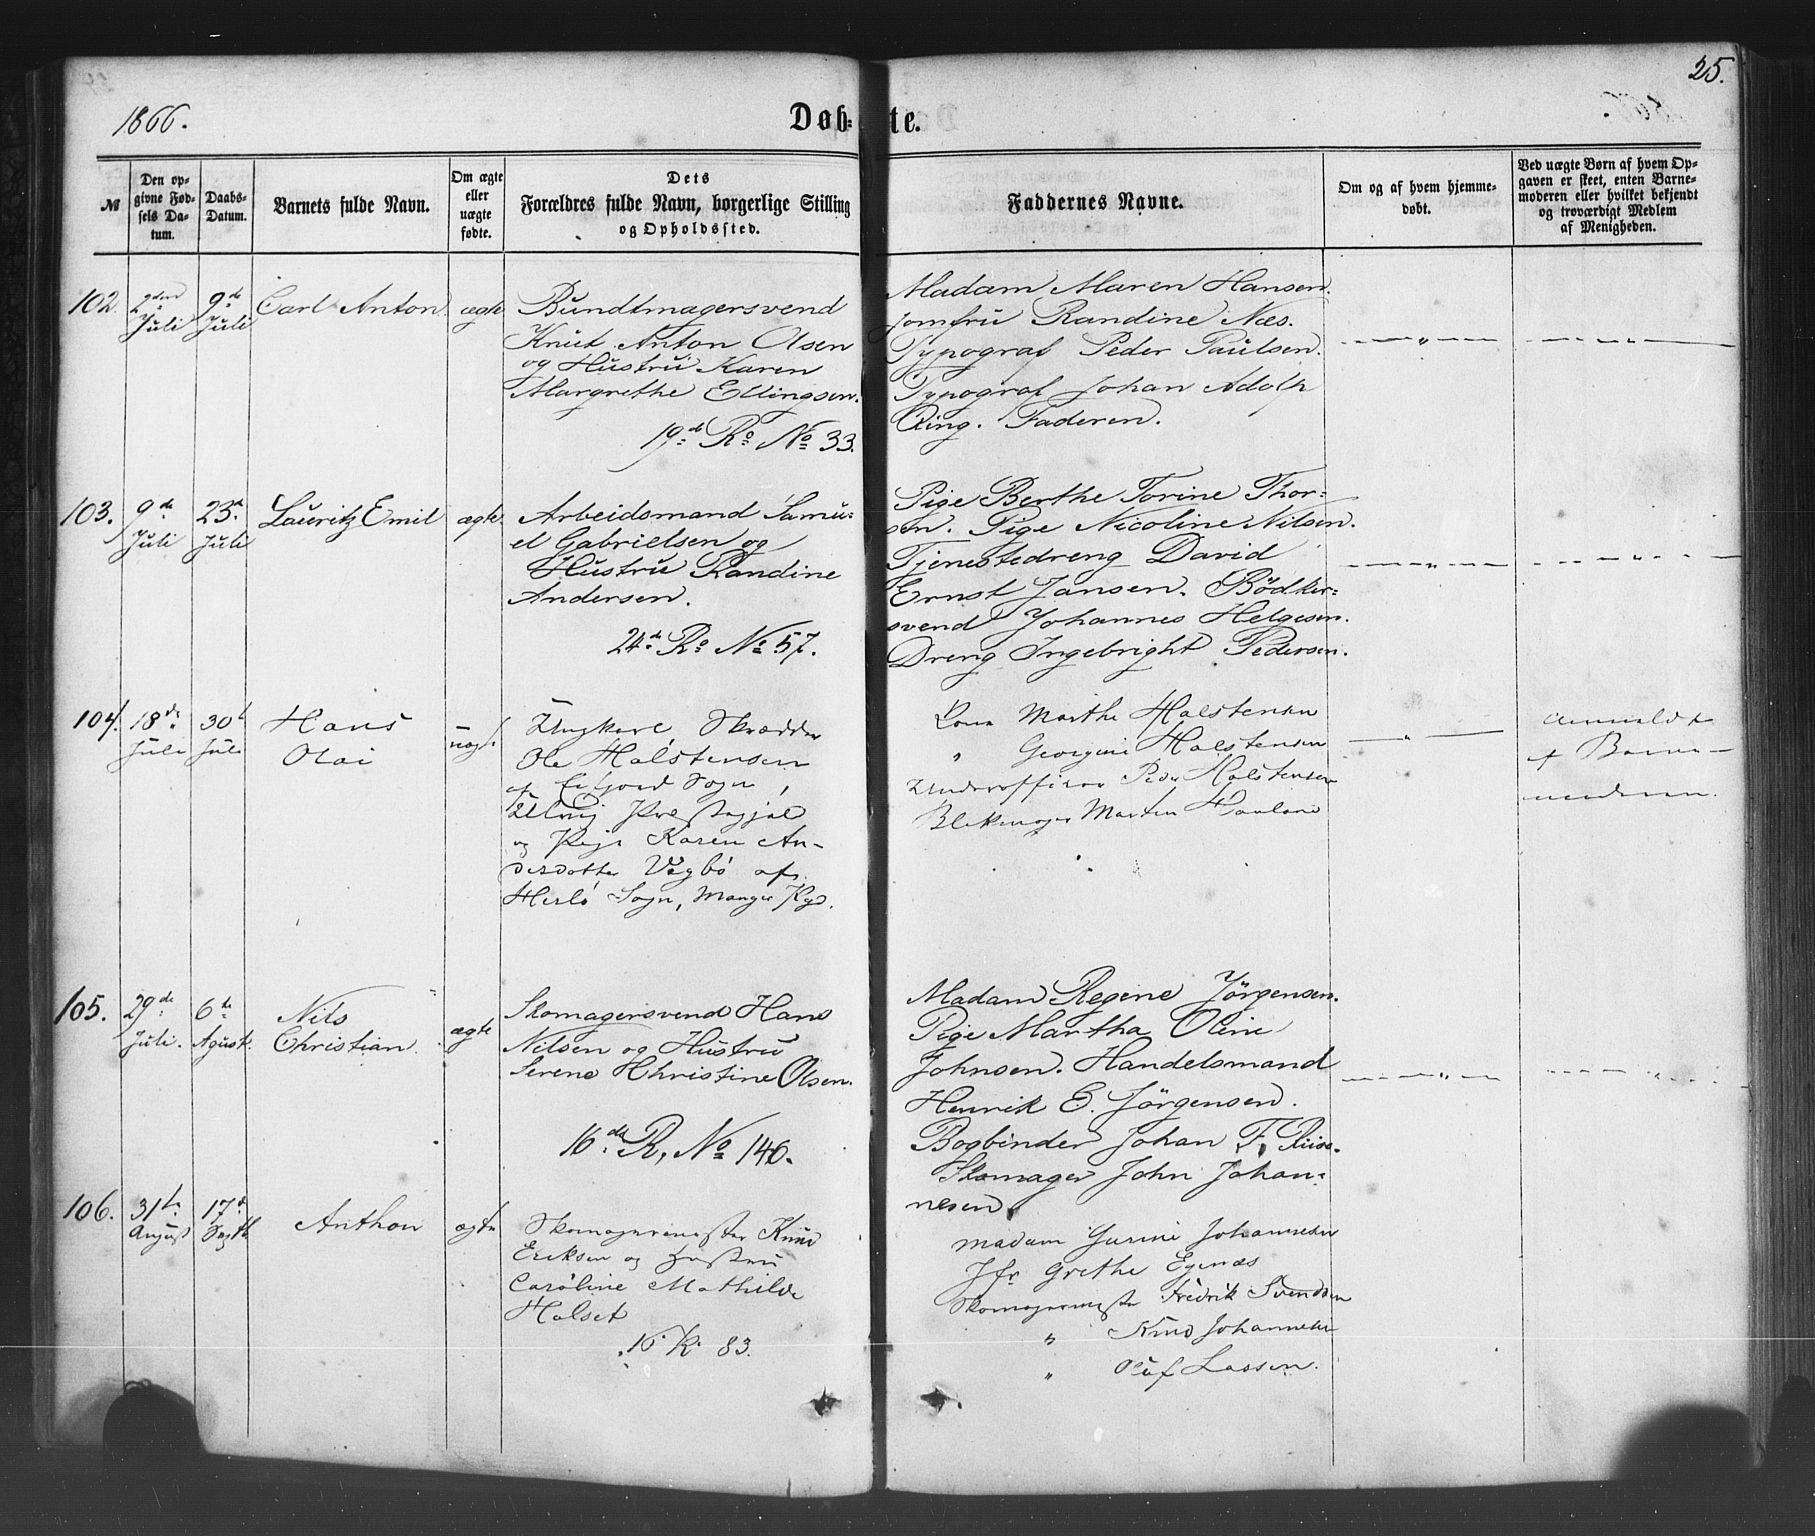 25.
1866.
Døb- te.
№
Den opgivne Fødsels Datum.
Daabs-Datum.
Barnets fulde Navn.
Om ægte eller uægte fødte.
Dets Forældres fulde Navn, borgerlige Stilling og Opholdssted.
Faddernes Navne.
Om og af hvem hjemmedøbt.
Ved uægte Børn af hvem Opgaven er skeet, enten Barnemoderen eller hvilket bekjendt og troværdigt Medlem af Menigheden.
102.
Juli
9de Juli
Carl Anton.
ægte
Bundtmagersvend
Knut Anton Olsen
og Hustru Karen
Margrethe Ellingsen.
19de Ro No 33.
Madam Maren Hansen.
Jomfru Randine Næs.
Typograf Peder Paulsen.
Typograf Johan Adolf
Ring. Faderen.
103.
9de Juli
23de Juli
Lauritz Emil
ægte
Arbeidsmand Samu-
el Gabrielsen og
Hustru Randine
Andersen.
24de Ro No 57.
Pige Berthe Torine Thor-
sen. Pige Nicoline Nilsen.
Tjenestedreng David
Ernst Jansen. Bödker-
svend Johannes Helgesen.
Dreng Ingebright Pedersen.
104.
18de Juli
30te Juli
Hans
Olai
uægte
Ungkarl, Skrædder
Ole Halstensen
af Eifjord Sogn,
Ulvig Præstegjæl
og Pige Karen An-
dersdatter Vägbö af
Herlö Sogn, Manger Pgd.
Kone Marthe Halstensen
" Georgine Halstensen
Underofficer Peder Halstensen
Blikmager Morten Haaland
anmeldt
af Barne-
moderen.
105.
29de Juli.
6te Agust.
Nils
Christian.
ægte
Skomagersvend Hans
Nilsen og Hustru
Serene Christine Olsen.
16de R, No 146.
Madam Regine Jörgensen.
Pige Martha Oline
Johnsen. Handelsmand
Henrik E. Jörgensen.
Bogbinder Johan F. Riise.
Skomager John Johan-
nesen.
106.
31te August
17de Septb
Anthon
ægte
Skomagermester Knud
Eriksen og Hustru
Caroline Mathilde
Halset
16 R. 83.
Madam Gurine Johannesen
Jfr Grethe Egenæs
Skomagermester Fredrik Svendsen
" Knud Johannesen
" Oluf Lassen.